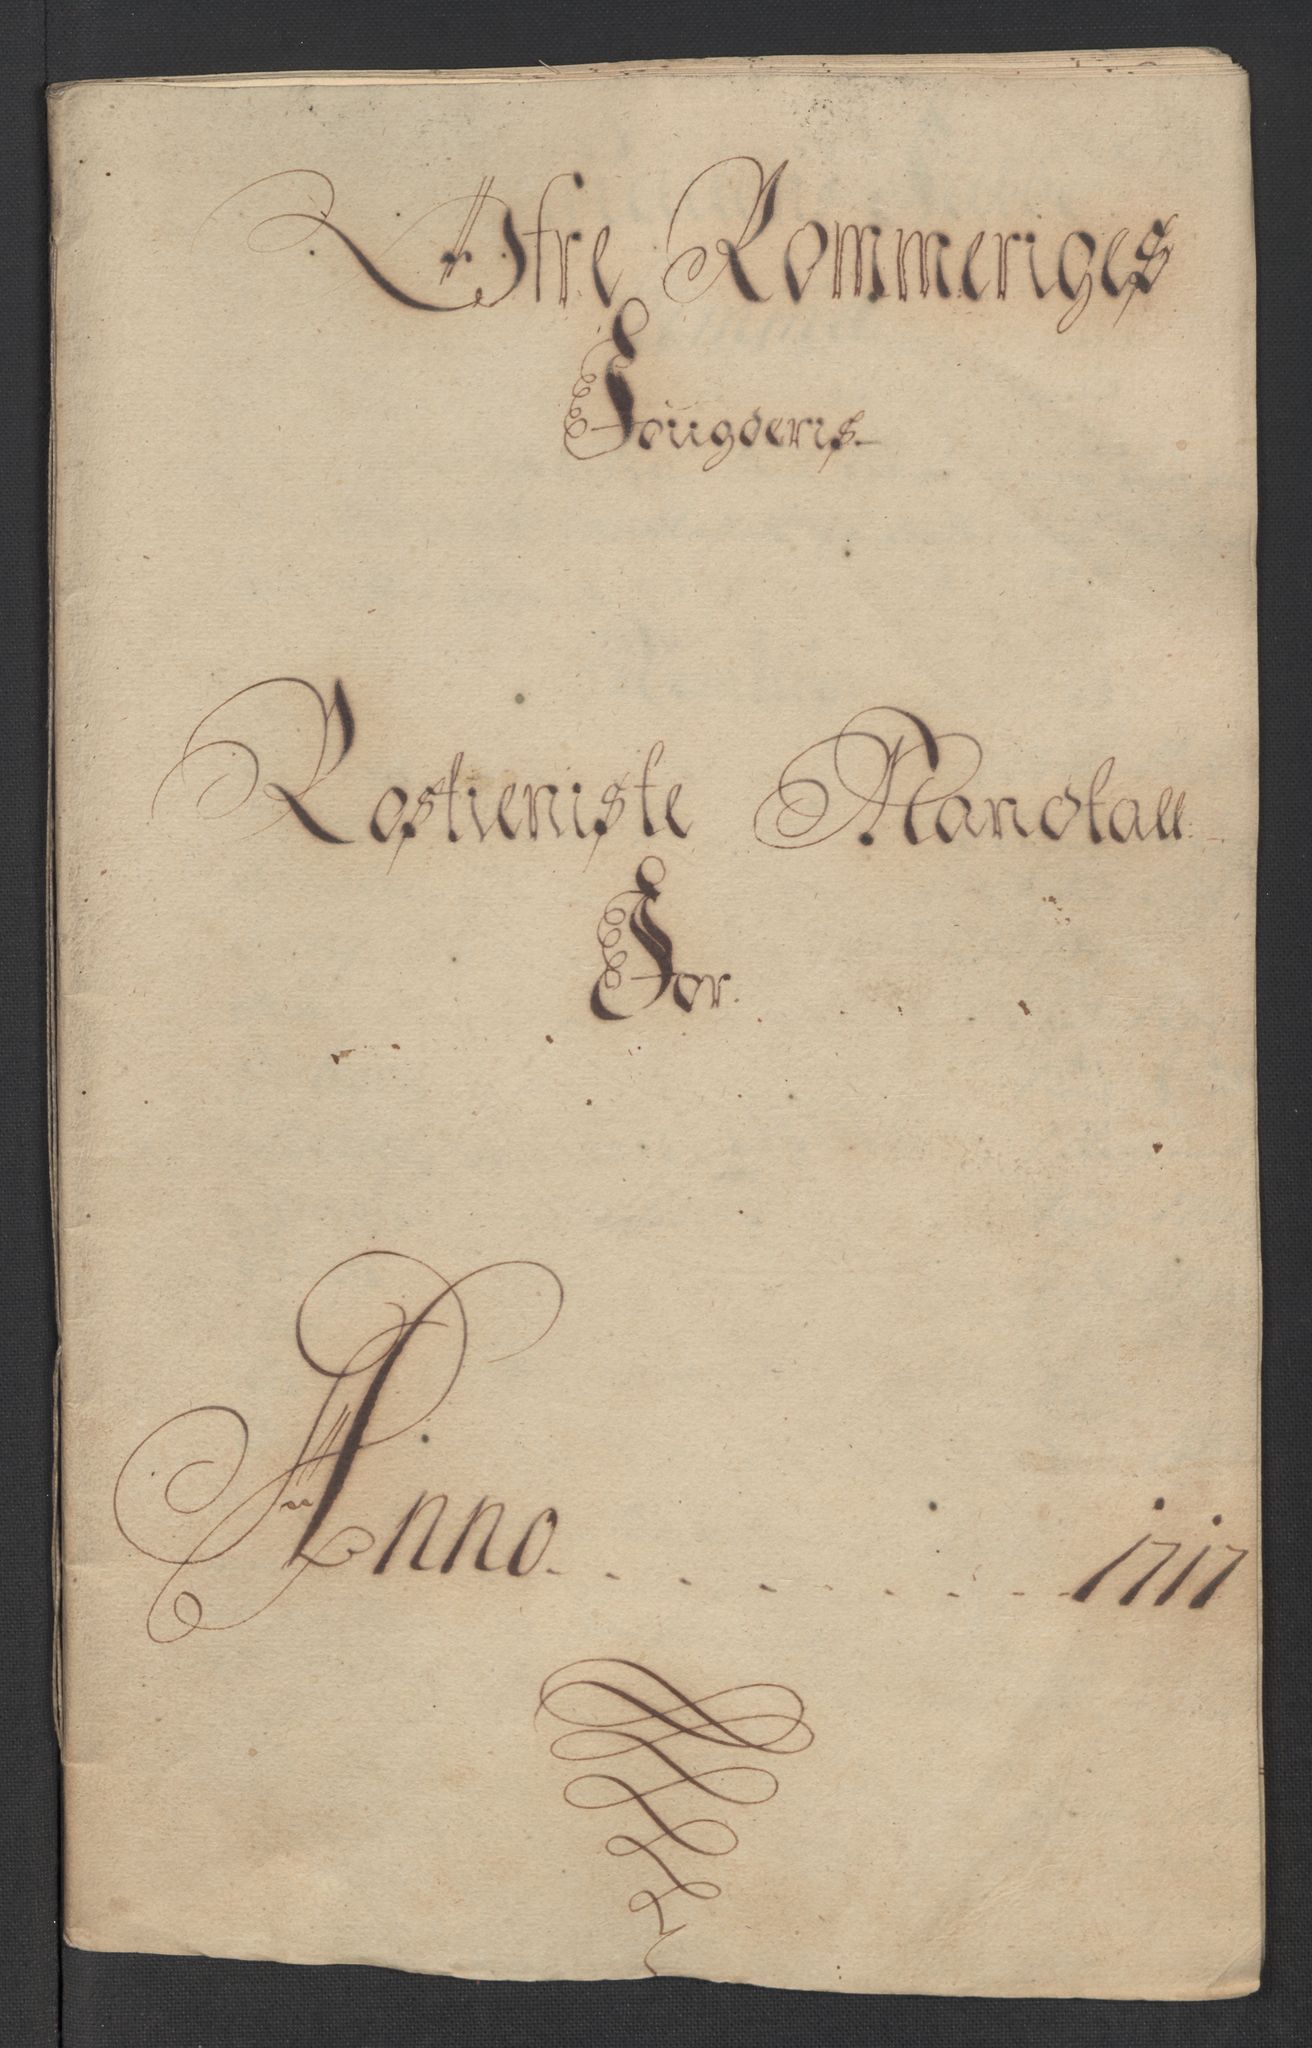 Øfre Rommeriges
Fougderis
Rostieniste Mandtall
For
Anno 1717